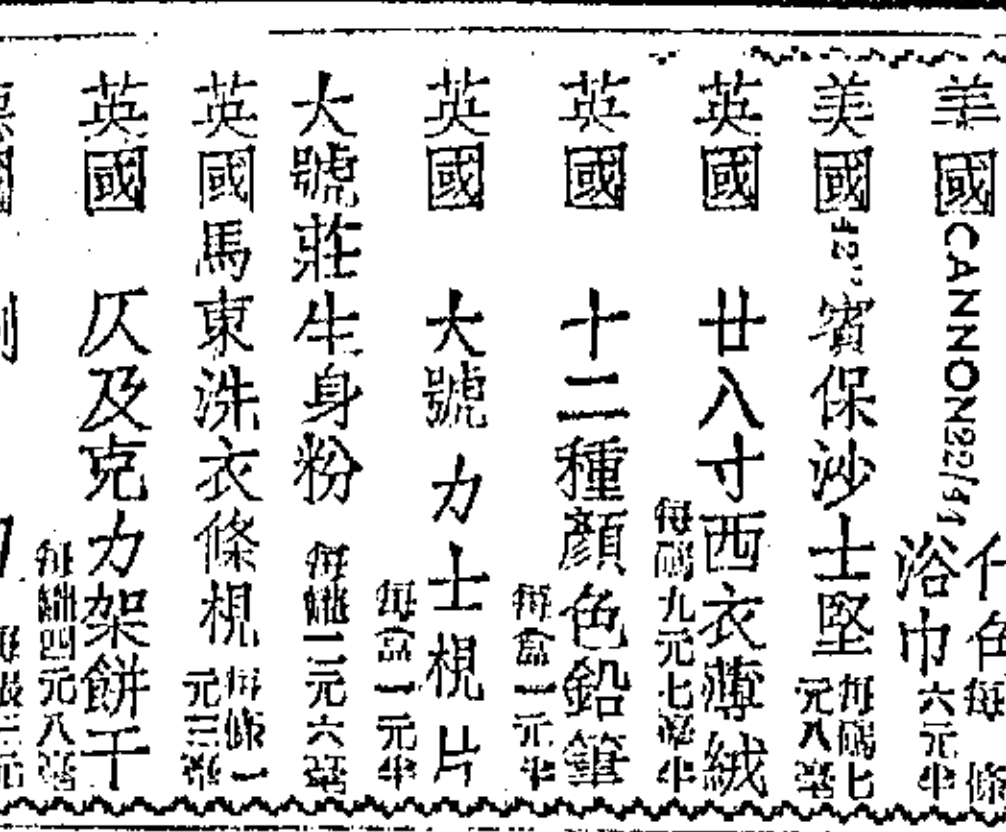 美國CANNON22/44什色浴巾 每條六元半
美國42"賓保沙士堅 每碼七元八毫
英國 廿八寸西衣薄絨 每碼九元七毫半
英國 十二種顏色鉛筆 每盒一元半
英國 大號力士梘片 每盒一元半
大號莊生身粉 每罐二元六毫
英國馬東洗衣條梘 每條一元三毫
英國 仄及克力架餅干 每罐四元八毫